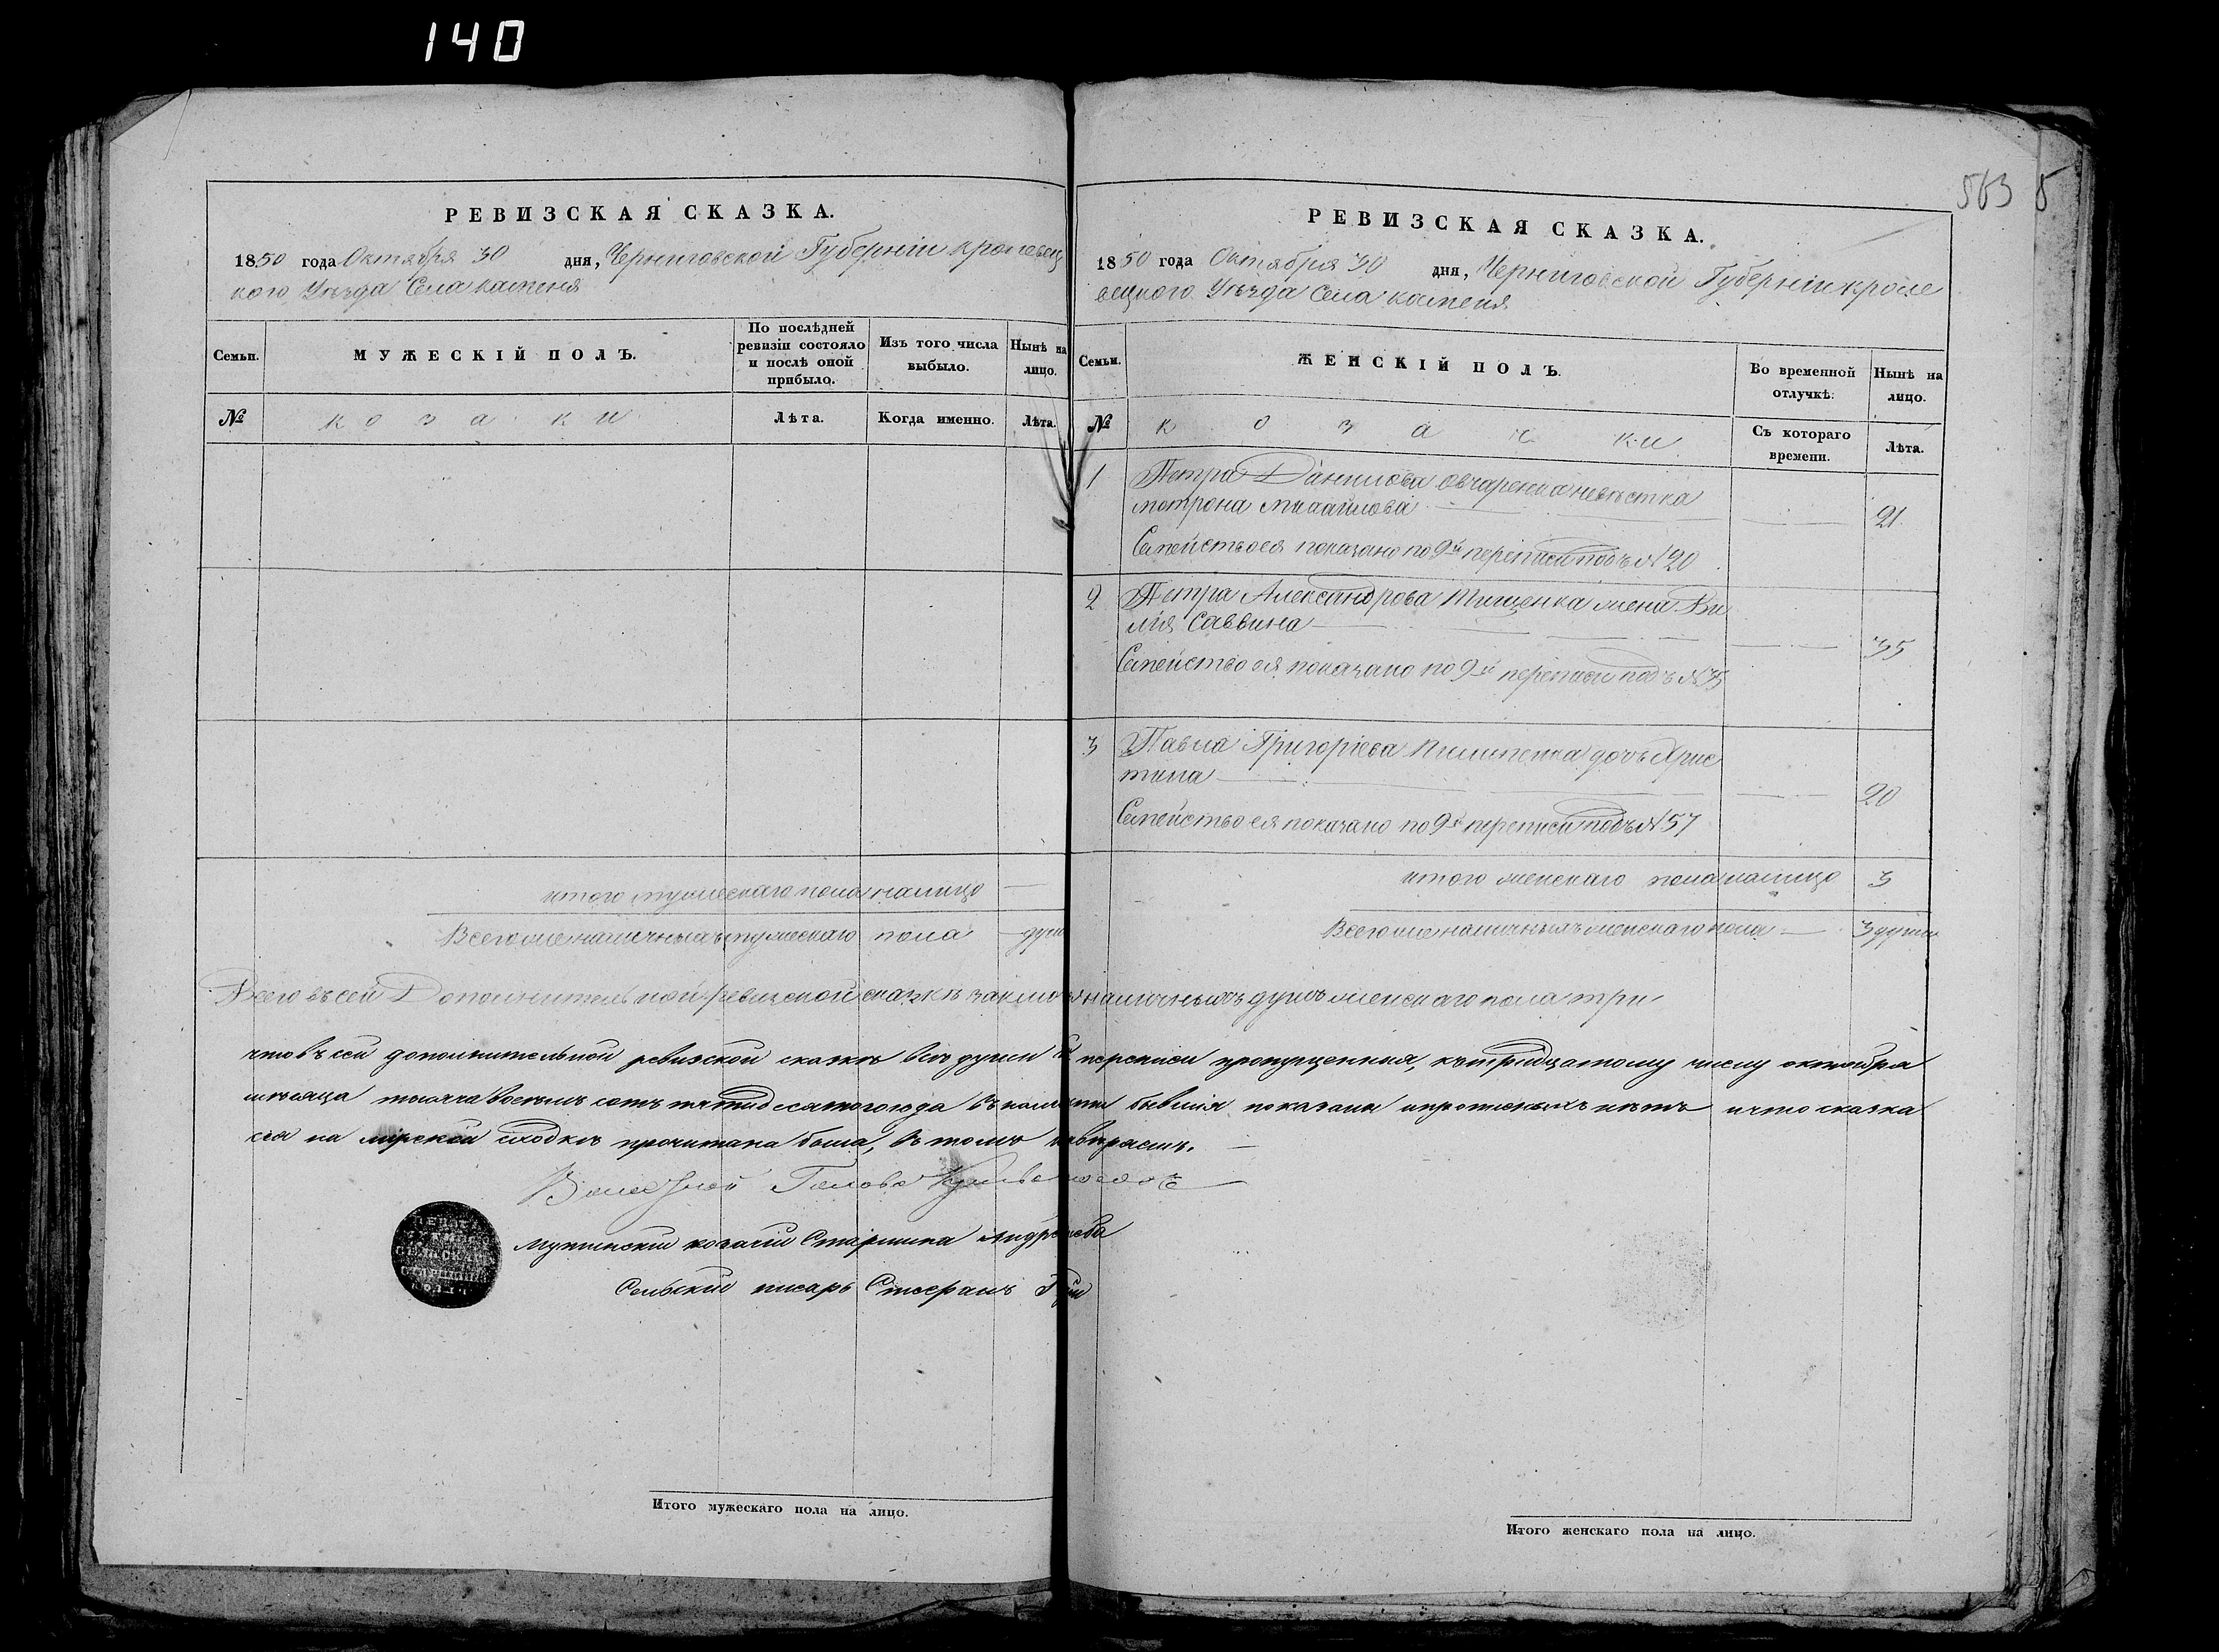 140
РЕВИЗСКАЯ СКАЗКА.
1850 года Октября 30 дня, Черниговской Губерніи кролевец
кого Уѣзда Села каменя
Семьи.
МУЖЕСКІЙ ПОЛЪ.
По послѣдней ревизіи состояло и послѣ оной прибыло.
Изъ того числа выбыло.
Нынѣ на лицо.
№
козаки
Лѣта.
Когда именно.
Лѣта.
итого мужескаго пола налицо —
Всего же наличныхъ мужескаго пола — душ
563 5
РЕВИЗСКАЯ СКАЗКА.
1850 года Октября 30 дня, Черниговской Губерніи кроле
вецкого Уѣзда Села каменя
Семьи.
ЖЕНСКІЙ ПОЛЪ.
Во временной отлучкѣ.
Нынѣ на лицо.
№
козачки
Съ котораго времени.
Лѣта.
1 Петра Данилова овчаренка невѣстка
мотрона михайлова 21
Семейство ея показано по 9й переписи подъ №20
2 Петра Александрова Тищенка жена
Саввина 35
Семейство ея показано по 9й переписи подъ №35
3 Павла Григоріева дочь Хрис
тина 20
Семейство ея показано по 9й переписи подъ №57
итого женскаго пола налицо 3
Всего же наличныхъ женскаго пола — 3 души
Всего въ сей Дополнительной ревизской сказкѣ наличныхъ душъ женскаго пола три
что въ сей дополнительной ревизской сказкѣ всѣ души переписи пропущенныя, къ тридцатому числу октября
мѣсяца тысяча восемь сотъ пятидесятого года въ бывшія показаны и нѣтъ и что сказка
сія на мірской сходкѣ прочитана была, въ томъ
Голова
козачій Старшина
Сельскій писарь
Итого мужескаго пола на лицо.
Итого женскаго пола на лицо.